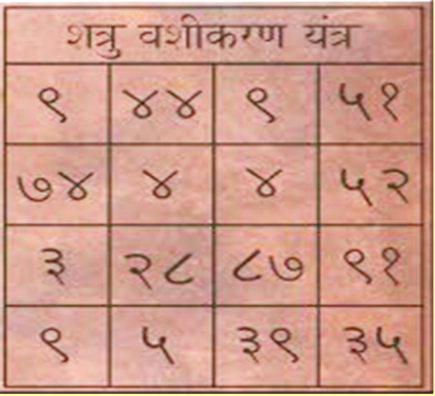 शत्रु वशीकरण यंत्र
९ ४४ ९ ५१
७४ ४ ४ ५२
३ २८ ८७ ९१
९ ५ ३९ ३५